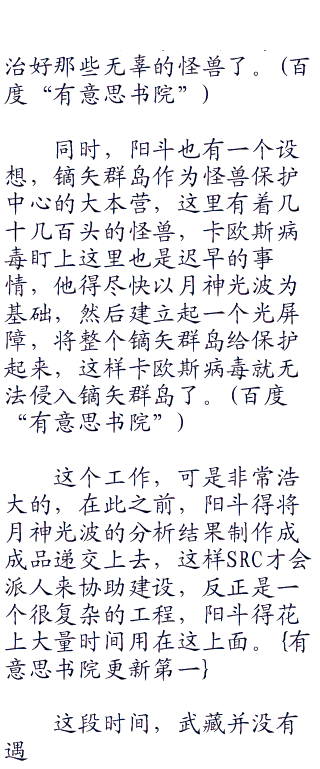 治好那些无辜的怪兽了。(百
度“有意思书院”)
同时，阳斗也有一个设
想，镝矢群岛作为怪兽保护
中心的大本营，这里有着几
十几百头的怪兽，卡欧斯病
毒盯上这里也是迟早的事
情，他得尽快以月神光波为
基础，然后建立起一个光屏
障，将整个镝矢群岛给保护
起来，这样卡欧斯病毒就无
法侵入镝矢群岛了。(百度
“有意思书院”)
这个工作，可是非常浩
大的，在此之前，阳斗得将
月神光波的分析结果制作成
成品递交上去，这样SRC才会
派人来协助建设，反正是一
个很复杂的工程，阳斗得花
上大量时间用在这上面。{有
意思书院更新第一}
这段时间，武藏并没有
遇